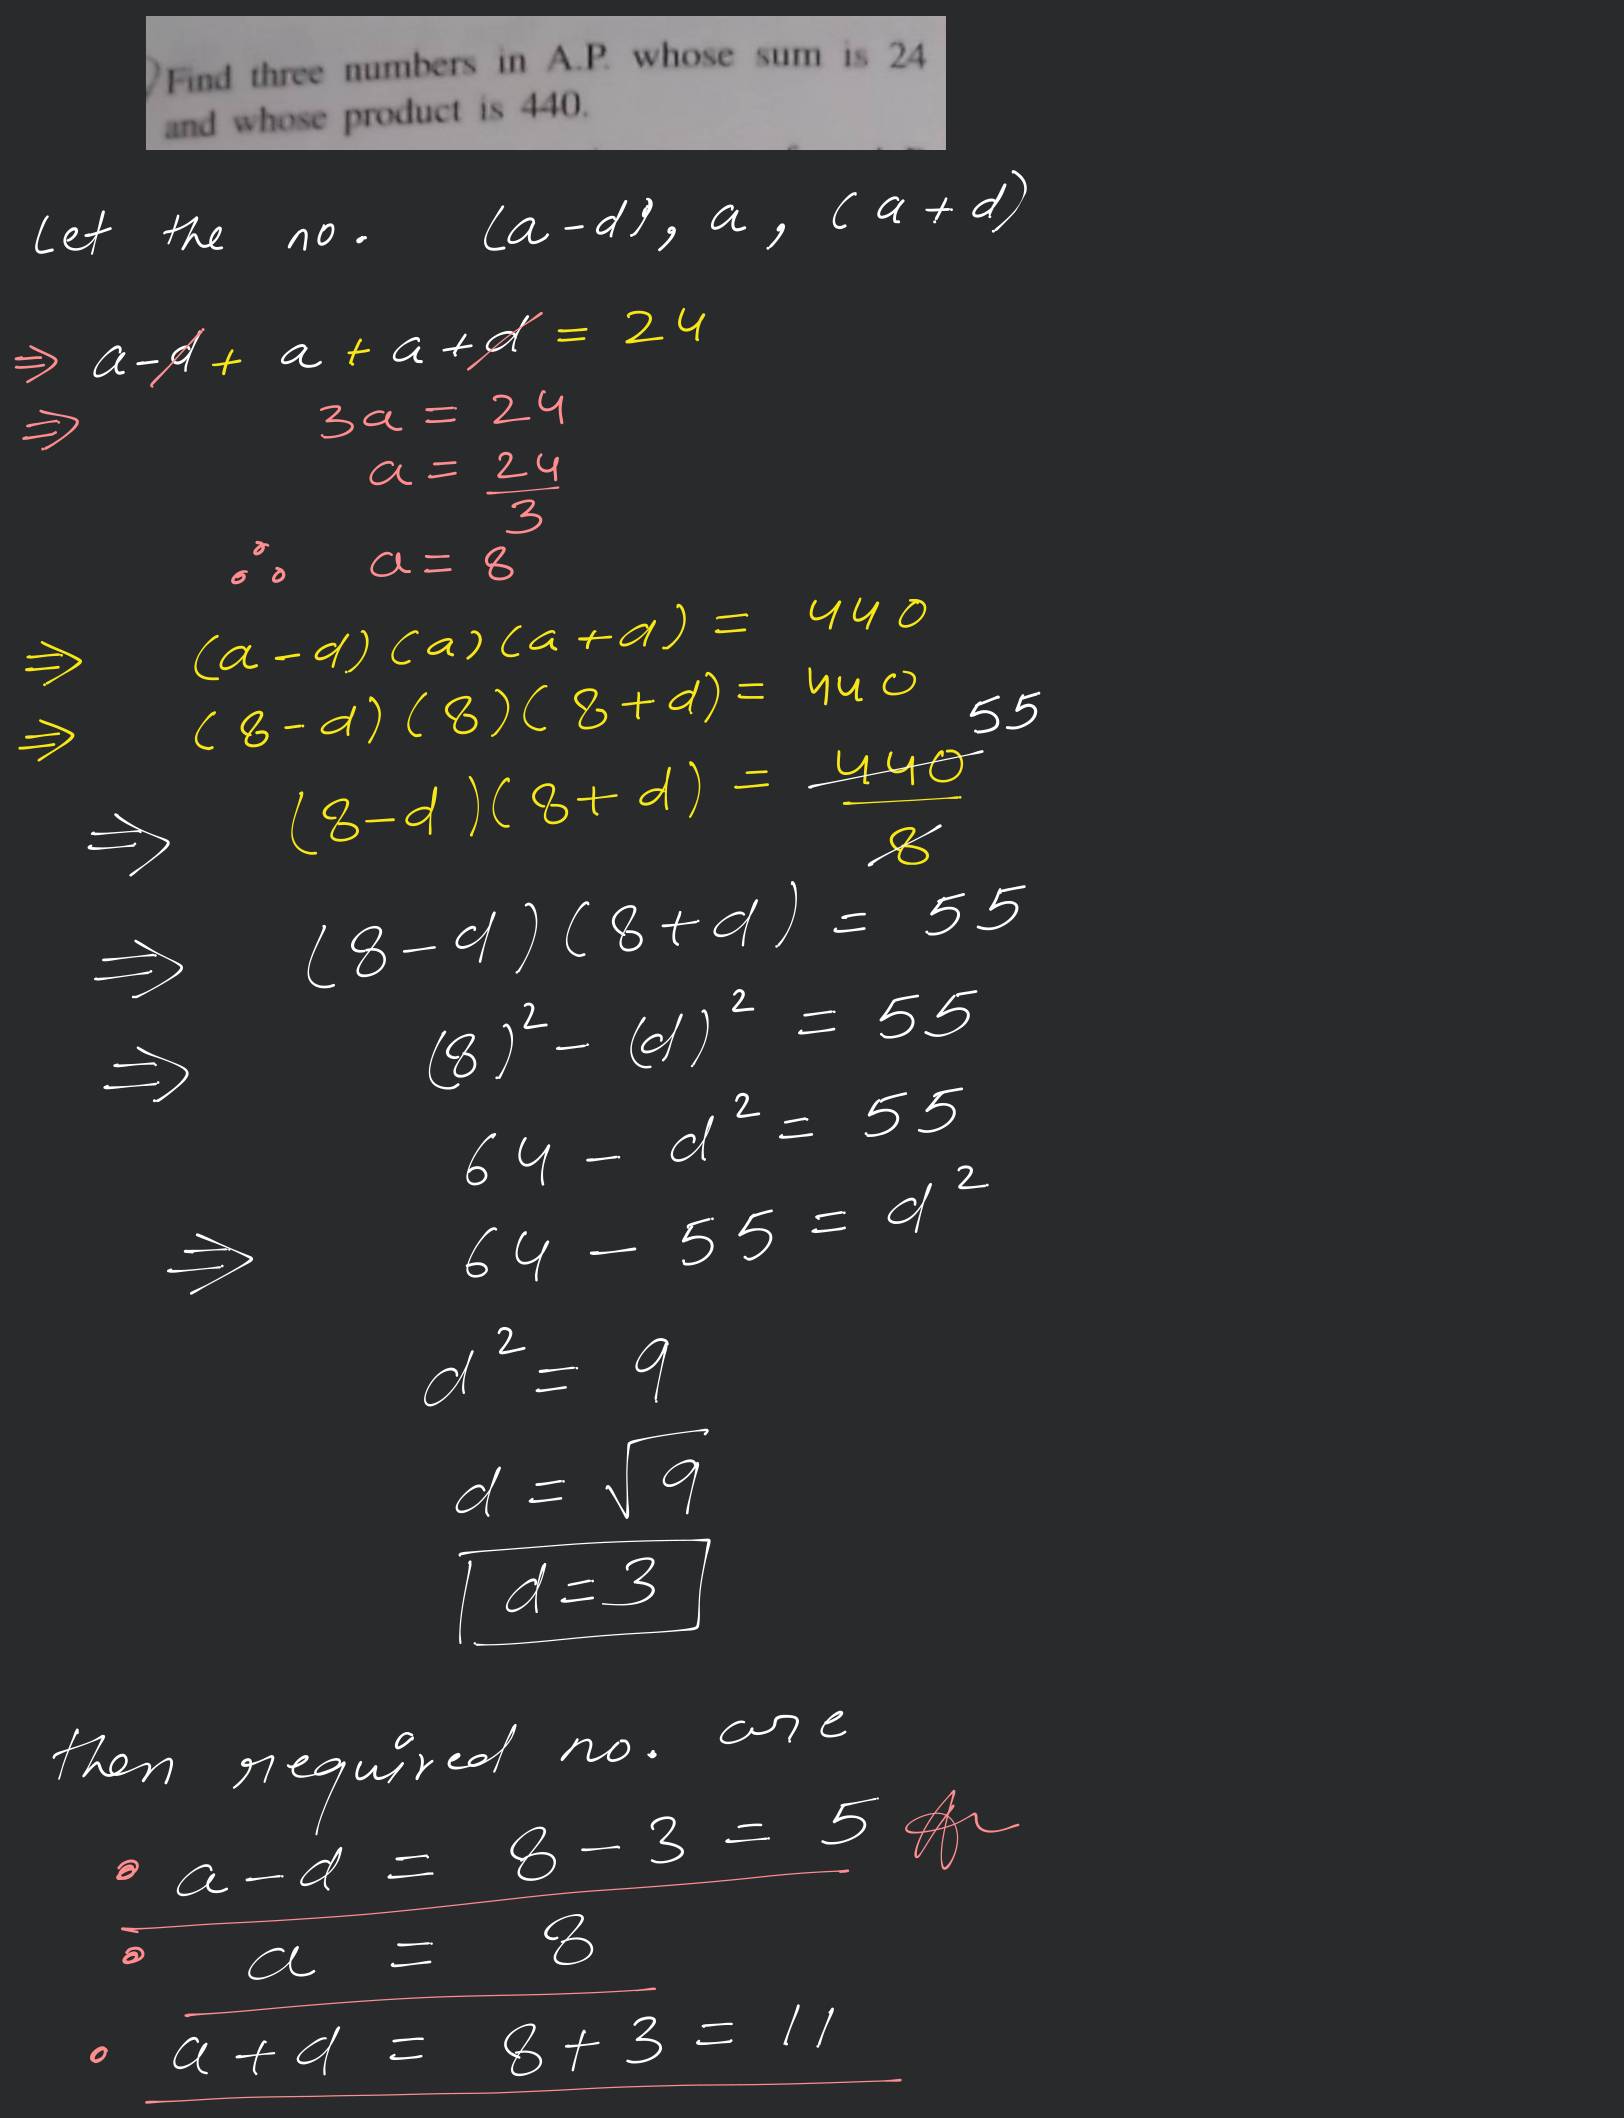 Find three numbers in A.P. whose sum is 24
and whose product is 440.
Let the no. (a-d), a, (a+d)
⇒ a-d + a + a+d = 24
⇒ 3a = 24
a = 24/3
∴ a = 8
⇒ (a-d)(a)(a+d) = 440
⇒ (8-d)(8)(8+d) = 440
⇒ (8-d)(8+d) = 440/8 55
⇒ (8-d)(8+d) = 55
⇒ (8)² - (d)² = 55
64 - d² = 55
⇒ 64 - 55 = d²
d² = 9
d = √9
d = 3
then required no. are
a-d = 8-3 = 5
a = 8
a+d = 8+3 = 11